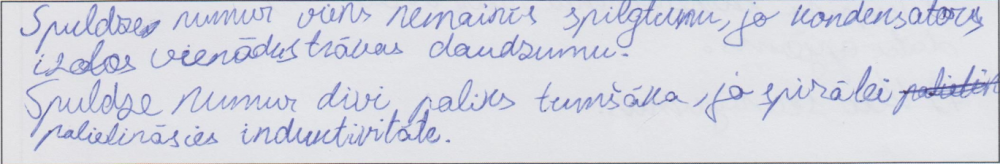 Spuldze numur viens nemainīs spilgtumu, jo kondensators
izdos vienādus trāvas daudzumu.
Spuldze numur divi paliks tumšāka, jo spirālei
palielināsies induktivitāte.